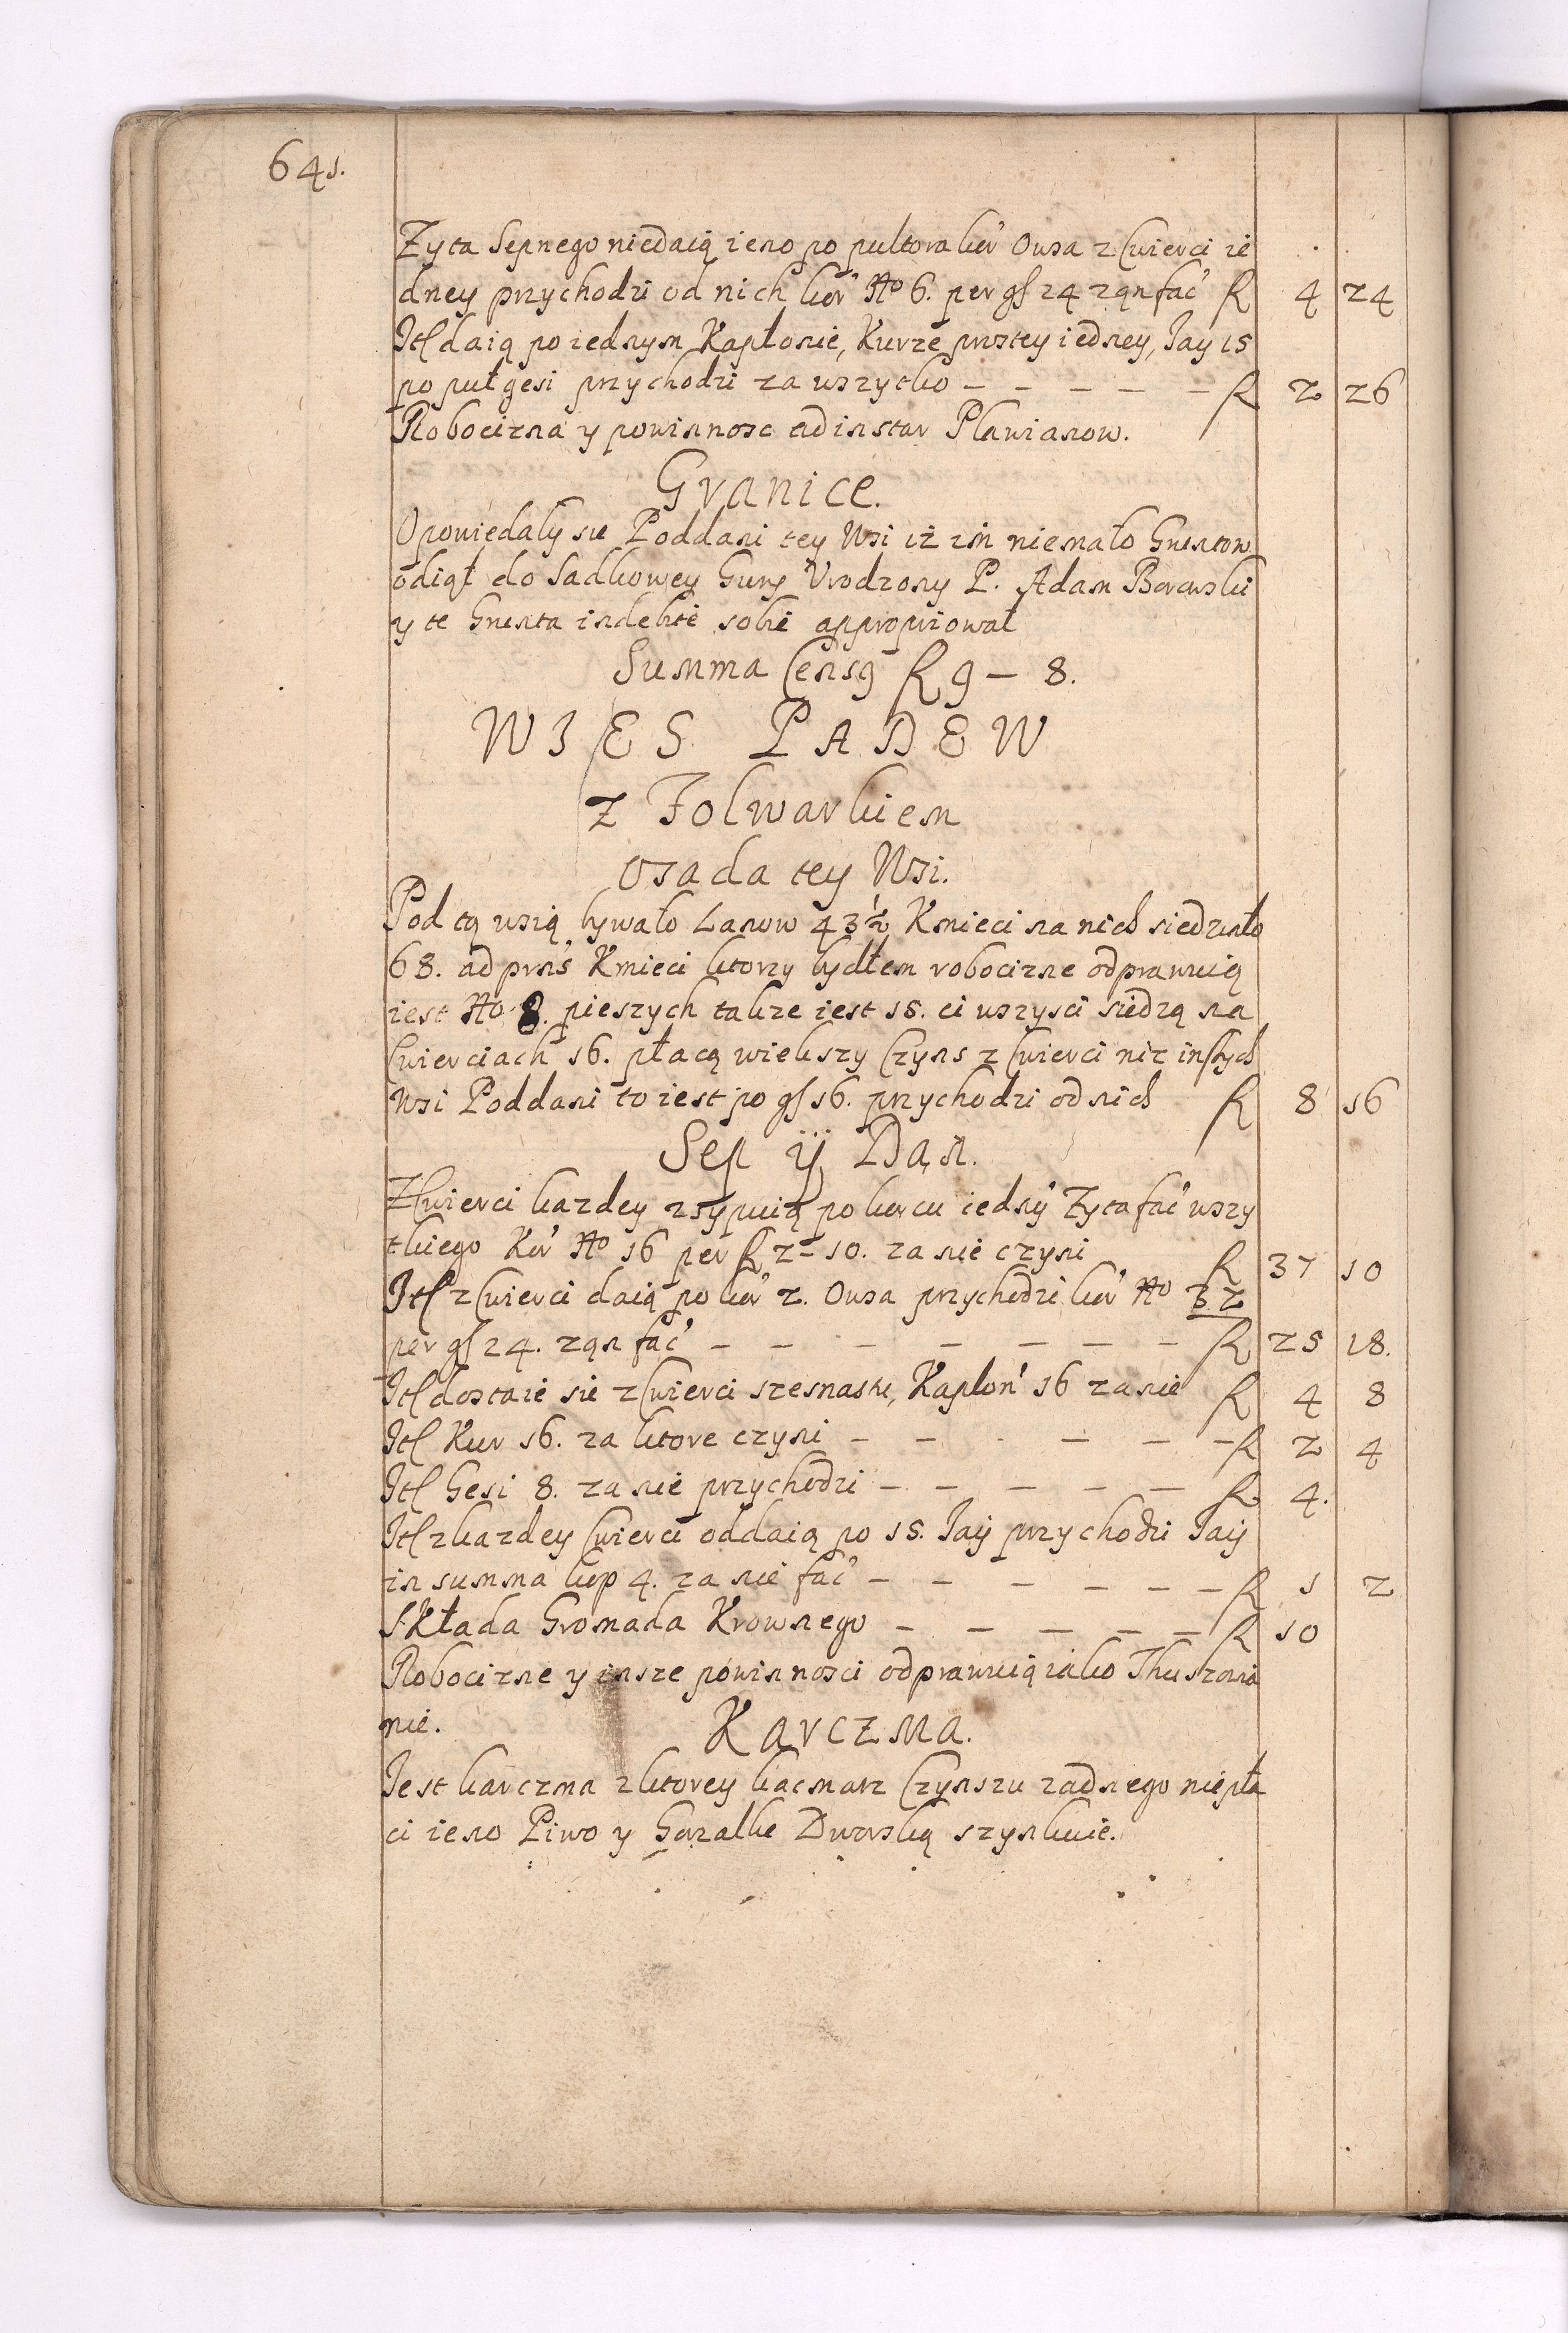 641.
Zyta Sepnego niedaią ieno po pultora kor' Owsa z Cwierci ie
dney przychodzi od nich kor' No 6. per gs 24 zan fac' R 4 24
Itl daią po iednym Kapłonie, Kurze prostey iedney, Jay 15
po puł gesi przychodzi za wszytko — — — — — R 2 26
Robocizna y powinnosc ad instar Plawianow.
Granice.
Opowiedaly sie Poddani tey Wsi iż im niemało Gruntow
odiął do Sadkowey Gury Vrodzony P. Adam Borowski
y te Grunta indebite sobie appropriował
Summa Censq R 9 — 8.
WIES PADEW
Z Folwarkiem
Osada tey Wsi.
Pod tą wsią bywało Lanow 43½ Kmieci na nich siedziało
68. ad prns Kmieci ktorzy bydłem robocizne odprawuią
iest No 8. pieszych takze iest 15. ci wszysci siedzą na
Cwierciach 16. płacą wiekszy Czyns z Cwierci niz inszych
Wsi Poddani to iest po gs 16. przychodzi od nich R 8 16
Sep ÿ Dan.
Z Cwierci kazdey zsypuią po korcu iedny Zyta fac' wszy
tkiego Kor' No 16 per R 2 – 10. za nie czyni R 37 10
Itl z Cwierci daią po kor' 2. Owsa przychodzi kor' No 32
per gs 24. zan fac' — — — — — — — R 25 18.
Itl dostaie sie z Cwierci szesnastu, Kaplon' 16 za nie R 4 8
Itl Kur 16. za ktore czyni — — — — — R 2 4
Itl Gesi 8. za nie przychodzi — — — — — R 4.
Itl z kazdey Cwierci oddaią po 15. Jaij przychodzi Jaij
in summa kop 4. za nie fac' — — — — — — R 1 2
Składa Gromada Krownego — — — — — R 10
Robocizne y insze powinnosci odprawuią iako Thuszowia
nie.
Karczma.
Jest karczma z ktorey kacmarz Czynszu zadnego niepła
ci ieno Piwo y Gorzalke Dworską szynkuie.